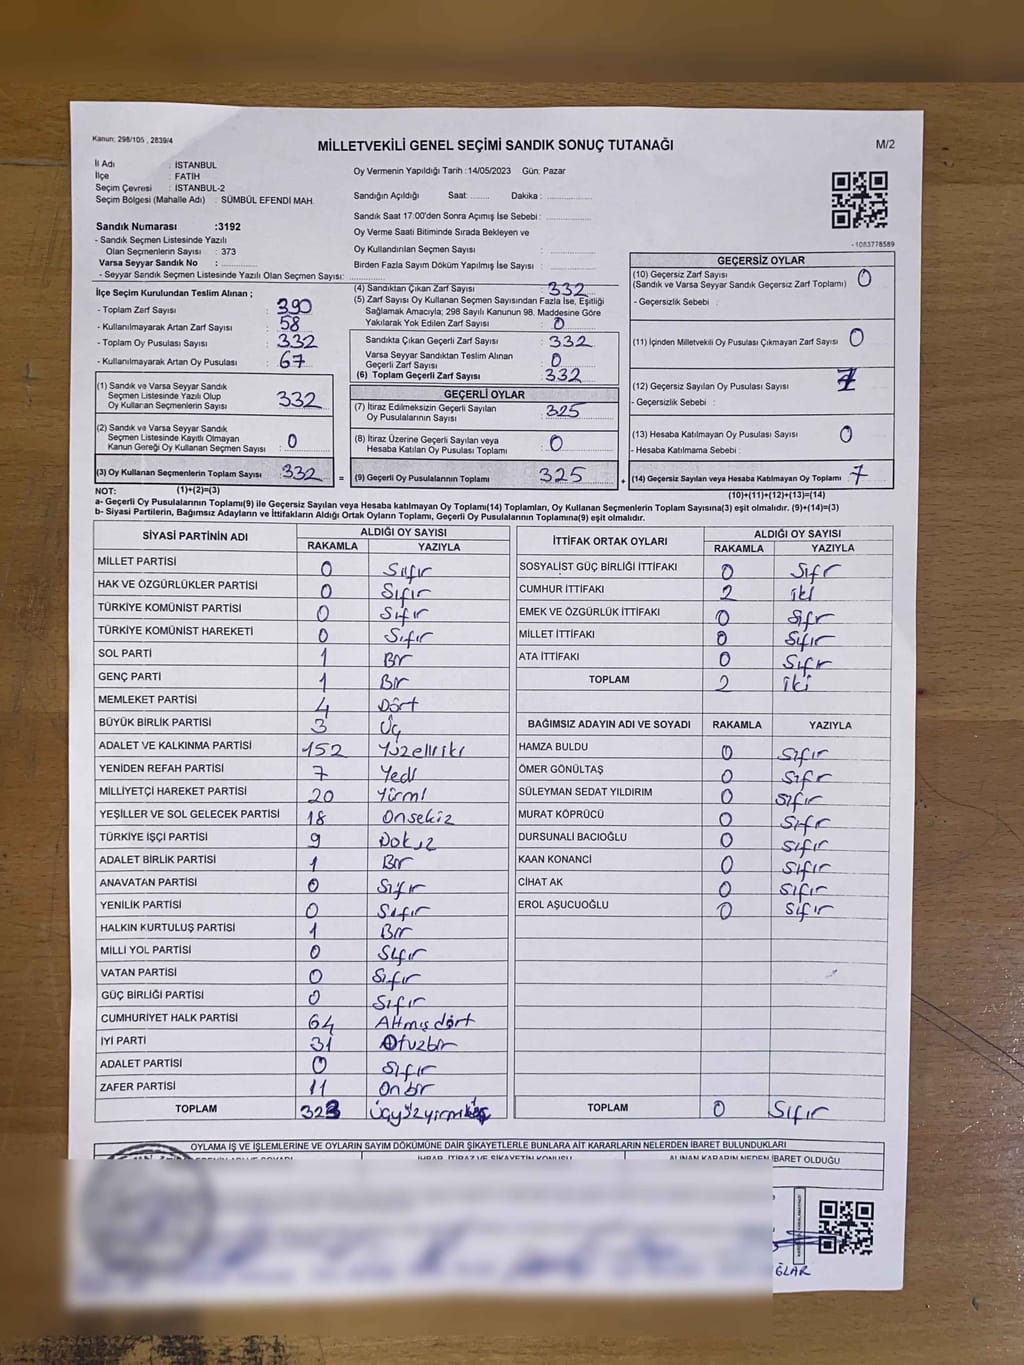 Kanun: 298/105 , 2839/4
MİLLETVEKİLİ GENEL SEÇİMİ SANDIK SONUÇ TUTANAĞI
M/2
İl Adı : İSTANBUL
İlçe : FATİH
Seçim Çevresi : İSTANBUL-2
Seçim Bölgesi (Mahalle Adı) : SÜMBÜL EFENDİ MAH.
Oy Vermenin Yapıldığı Tarih :14/05/2023 Gün: Pazar
Sandığın Açıldığı Saat: ........ Dakika : ........
Sandık Saat 17:00'den Sonra Açımış İse Sebebi : ........
Oy Verme Saati Bitiminde Sırada Bekleyen ve
Oy Kullandırılan Seçmen Sayısı : ........
Birden Fazla Sayım Döküm Yapılmış İse Sayısı : ........
Sandık Numarası :3192
- Sandık Seçmen Listesinde Yazılı
Olan Seçmenlerin Sayısı : 373
Varsa Seyyar Sandık No : ........
- Seyyar Sandık Seçmen Listesinde Yazılı Olan Seçmen Sayısı: ........
- 1083778589
İlçe Seçim Kurulundan Teslim Alınan ;
- Toplam Zarf Sayısı : 390
- Kullanılmayarak Artan Zarf Sayısı : 58
- Toplam Oy Pusulası Sayısı : 332
- Kullanılmayarak Artan Oy Pusulası : 67
(1) Sandık ve Varsa Seyyar Sandık
Seçmen Listesinde Yazılı Olup
Oy Kullanan Seçmenlerin Sayısı : 332
(2) Sandık ve Varsa Seyyar Sandık
Seçmen Listesinde Kayıtlı Olmayan
Kanun Gereği Oy Kullanan Seçmen Sayısı : 0
(3) Oy Kullanan Seçmenlerin Toplam Sayısı : 332 =
(1)+(2)=(3)
(4) Sandıktan Çıkan Zarf Sayısı : 332
(5) Zarf Sayısı Oy Kullanan Seçmen Sayısından Fazla İse, Eşitliği
Sağlamak Amacıyla; 298 Sayılı Kanunun 98. Maddesine Göre
Yakılarak Yok Edilen Zarf Sayısı : 0
Sandıkta Çıkan Geçerli Zarf Sayısı : 332
Varsa Seyyar Sandıktan Teslim Alınan
Geçerli Zarf Sayısı : 0
(6) Toplam Geçerli Zarf Sayısı : 332
GEÇERLİ OYLAR
(7) İtiraz Edilmeksizin Geçerli Sayılan
Oy Pusulalarının Sayısı : 325
(8) İtiraz Üzerine Geçerli Sayılan veya
Hesaba Katılan Oy Pusulası Toplamı : 0
(9) Geçerli Oy Pusulalarının Toplamı : 325 +
GEÇERSİZ OYLAR
(10) Geçersiz Zarf Sayısı : 0
(Sandık ve Varsa Seyyar Sandık Geçersiz Zarf Toplamı)
- Geçersizlik Sebebi :
(11) İçinden Milletvekili Oy Pusulası Çıkmayan Zarf Sayısı : 0
(12) Geçersiz Sayılan Oy Pusulası Sayısı : 7
- Geçersizlik Sebebi :
(13) Hesaba Katılmayan Oy Pusulası Sayısı : 0
- Hesaba Katılmama Sebebi :
(14) Geçersiz Sayılan veya Hesaba Katılmayan Oy Toplamı : 7
(10)+(11)+(12)+(13)=(14)
NOT:
a- Geçerli Oy Pusulalarının Toplamı(9) ile Geçersiz Sayılan veya Hesaba Katılmayan Oy Toplamı(14) Toplamları, Oy Kullanan Seçmenlerin Toplam Sayısına(3) eşit olmalıdır. (9)+(14)=(3)
b- Siyasi Partilerin, Bağımsız Adayların ve İttifakların Aldığı Ortak Oyların Toplamı, Geçerli Oy Pusulalarının Toplamına(9) eşit olmalıdır.
SİYASİ PARTİNİN ADI ALDIĞI OY SAYISI
RAKAMLA YAZIYLA
MİLLET PARTİSİ 0 Sıfır
HAK VE ÖZGÜRLÜKLER PARTİSİ 0 Sıfır
TÜRKİYE KOMÜNİST PARTİSİ 0 Sıfır
TÜRKİYE KOMÜNİST HAREKETİ 0 Sıfır
SOL PARTİ 1 Bir
GENÇ PARTİ 1 Bir
MEMLEKET PARTİSİ 4 Dört
BÜYÜK BİRLİK PARTİSİ 3 Üç
ADALET VE KALKINMA PARTİSİ 152 Yüzelliiki
YENİDEN REFAH PARTİSİ 7 Yedi
MİLLİYETÇİ HAREKET PARTİSİ 20 Yirmi
YEŞİLLER VE SOL GELECEK PARTİSİ 18 Onsekiz
TÜRKİYE İŞÇİ PARTİSİ 9 Dokuz
ADALET BİRLİK PARTİSİ 1 Bir
ANAVATAN PARTİSİ 0 Sıfır
YENİLİK PARTİSİ 0 Sıfır
HALKIN KURTULUŞ PARTİSİ 1 Bir
MİLLİ YOL PARTİSİ 0 Sıfır
VATAN PARTİSİ 0 Sıfır
GÜÇ BİRLİĞİ PARTİSİ 0 Sıfır
CUMHURİYET HALK PARTİSİ 64 Altmışdört
İYİ PARTİ 31 Otuzbir
ADALET PARTİSİ 0 Sıfır
ZAFER PARTİSİ 11 Onbir
TOPLAM 323 Üçyüzyirmiüç
İTTİFAK ORTAK OYLARI ALDIĞI OY SAYISI
RAKAMLA YAZIYLA
SOSYALİST GÜÇ BİRLİĞİ İTTİFAKI 0 Sıfır
CUMHUR İTTİFAKI 2 iki
EMEK VE ÖZGÜRLÜK İTTİFAKI 0 Sıfır
MİLLET İTTİFAKI 0 Sıfır
ATA İTTİFAKI 0 Sıfır
TOPLAM 2 iki
BAĞIMSIZ ADAYIN ADI VE SOYADI RAKAMLA YAZIYLA
HAMZA BULDU 0 Sıfır
ÖMER GÖNÜLTAŞ 0 Sıfır
SÜLEYMAN SEDAT YILDIRIM 0 Sıfır
MURAT KÖPRÜCÜ 0 Sıfır
DURSUNALİ BACIOĞLU 0 Sıfır
KAAN KONANCİ 0 Sıfır
CİHAT AK 0 Sıfır
EROL AŞUCUOĞLU 0 Sıfır
TOPLAM 0 Sıfır
OYLAMA İŞ VE İŞLEMLERİNE VE OYLARIN SAYIM DÖKÜMÜNE DAİR ŞİKAYETLERLE BUNLARA AİT KARARLARIN NELERDEN İBARET BULUNDUKLARI
İHBAR, İTİRAZ VE ŞİKAYETİN KONUSU ALINAN KARARIN NEDEN İBARET OLDUĞU
ĞLAR